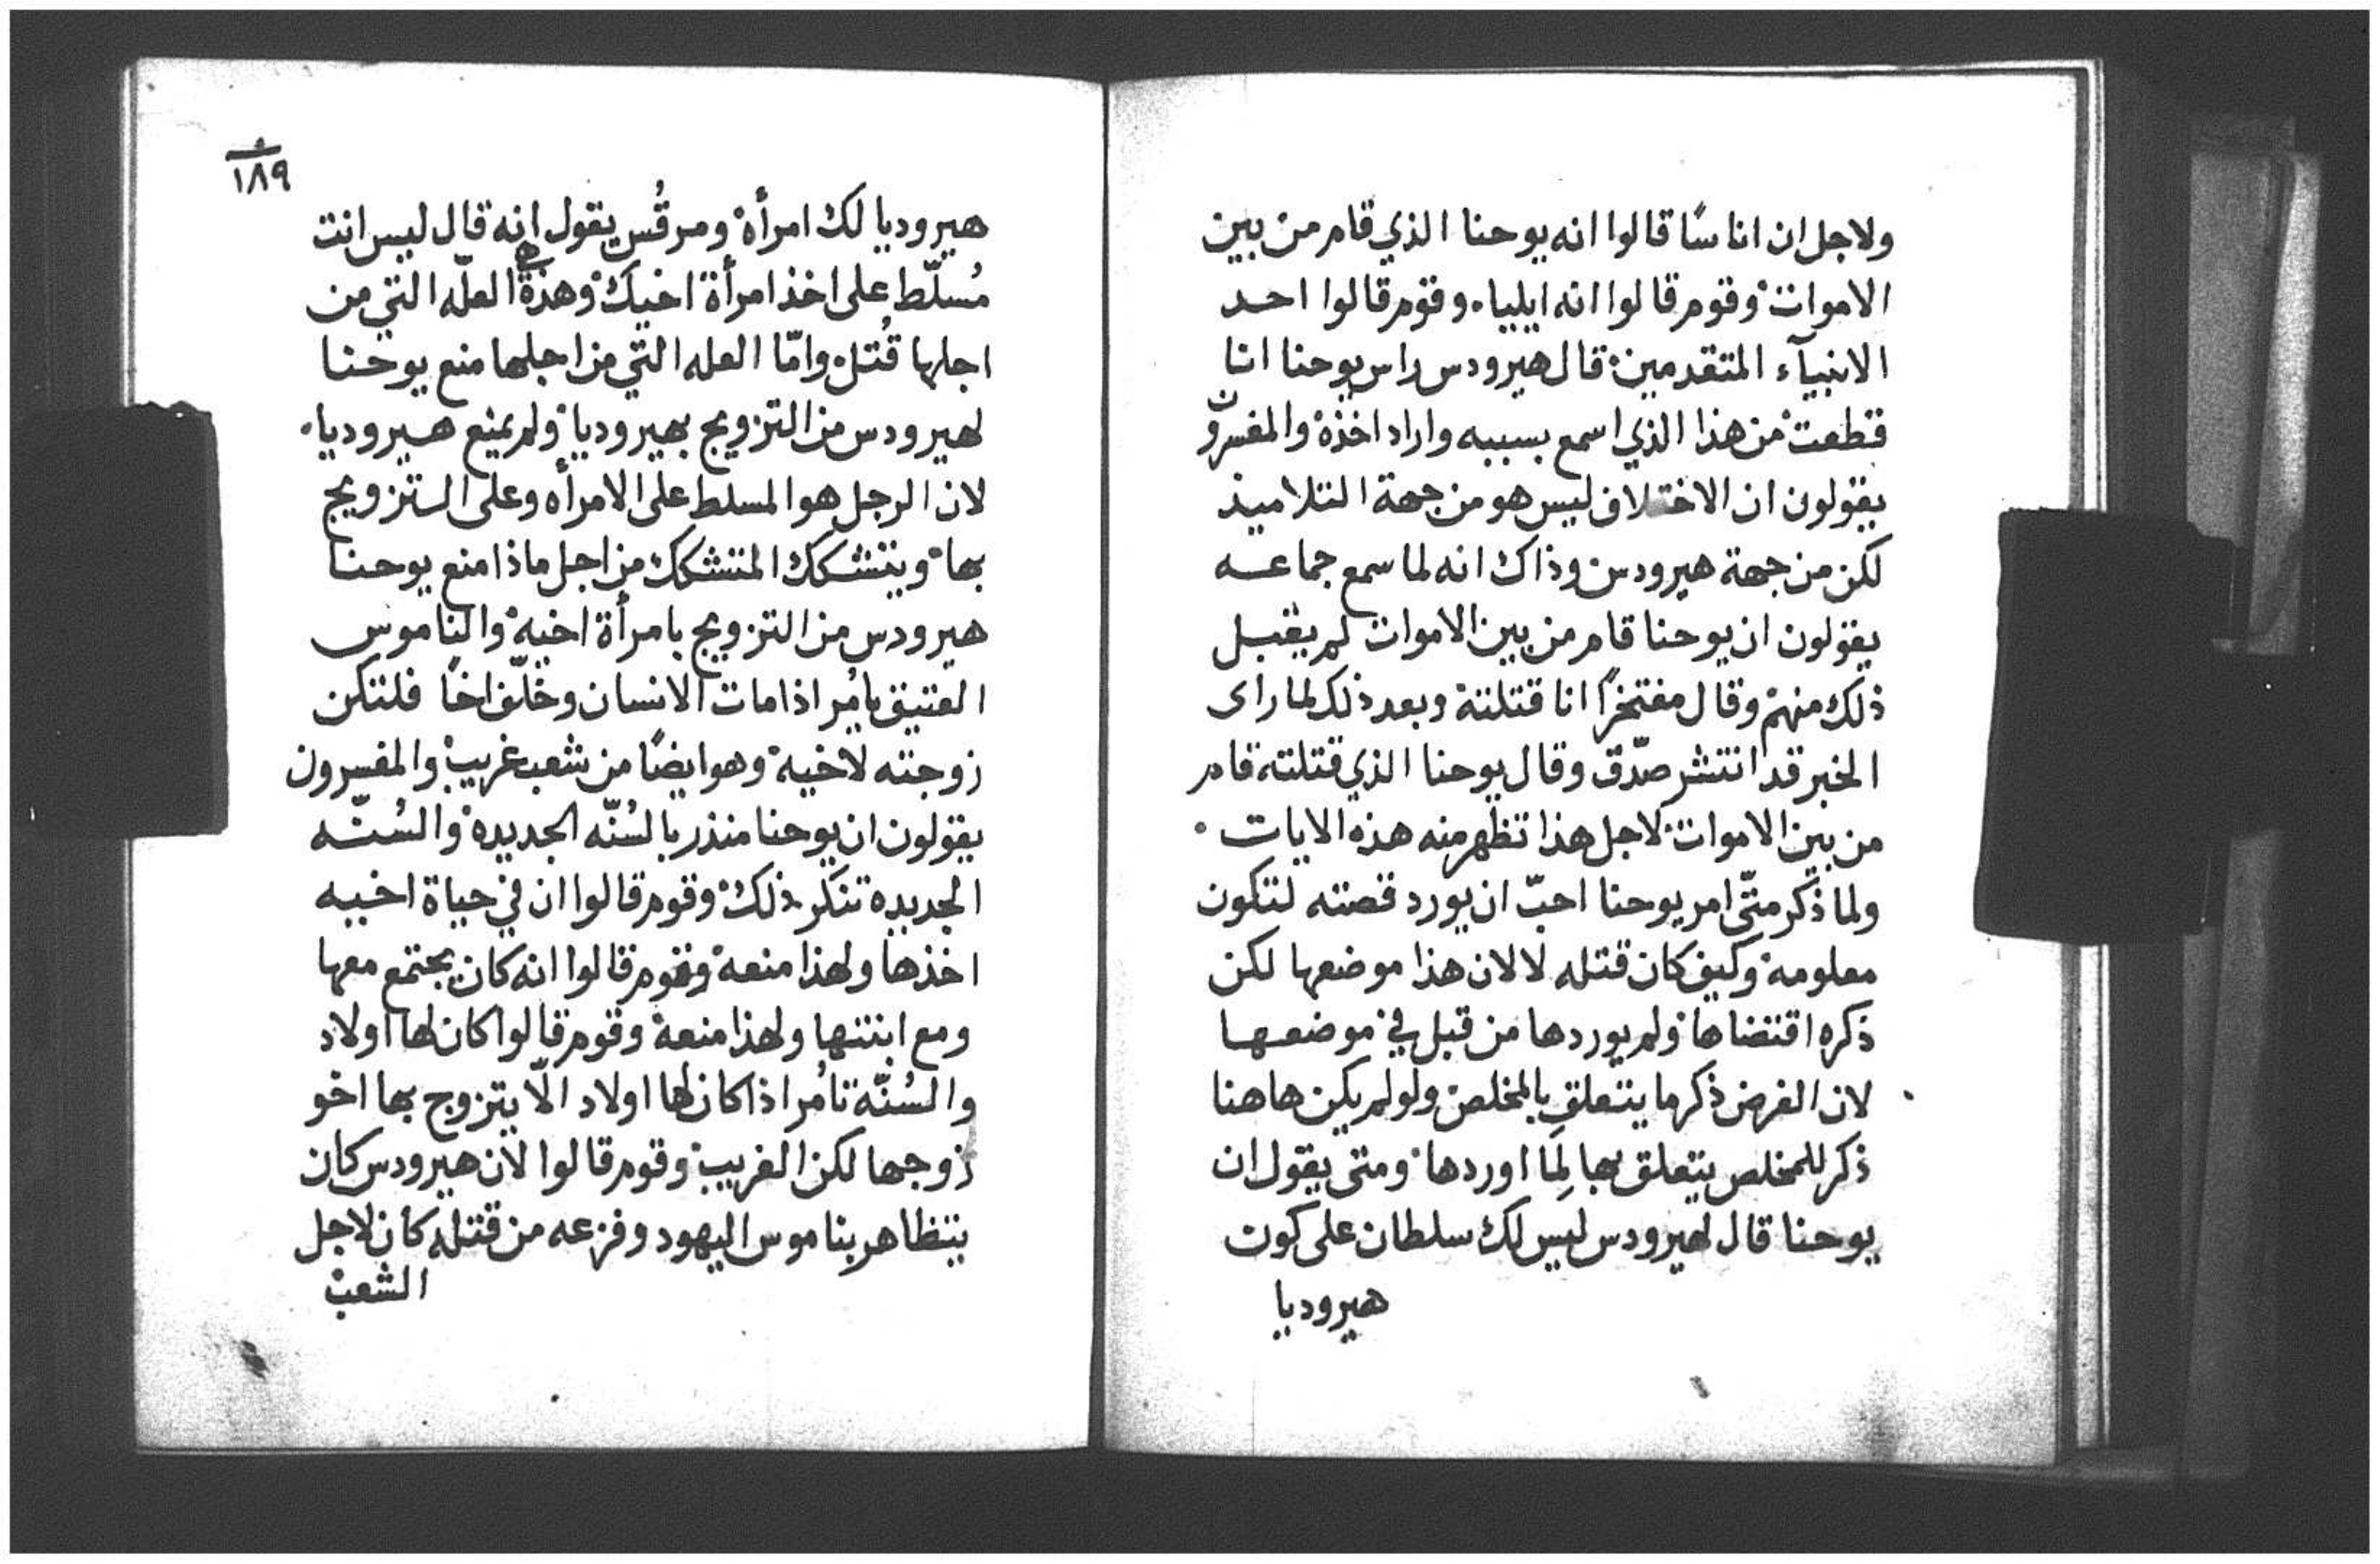 ولاجل ان اناسًا قالوا انه يوحنا الذي قام من بين
الاموات وقوم قالوا انه ايلياء وقوم قالوا احد
الانبيآء المتقدمين قال هيرودس راس يوحنا انا
قطعت من هذا الذي اسمع بسببه واراد اخذه والمفسرون
يقولون ان الاختلاف ليس هو من جهة التلاميذ
لكن من جهة هيرودس وذاك انه لما سمع جماعه
يقولون ان يوحنا قام من بين الاموات لم يقبل
ذلك منهم وقال مفتخرًا انا قتلته وبعد ذلك لما راى
الخبر قد انتشر صدّق وقال يوحنا الذي قتلته قام
من بين الاموات لاجل هذا تظهر منه هذه الايات
ولما ذكر متّى امر يوحنا احبّ ان يورد قصته لتكون
معلومه وكيف كان قتله لا لان هذا موضعها لكن
ذكره اقتضاها ولم يوردها من قبل في موضعها
لان الغرض ذكر ما يتعلق بالمخلص ولو لم يكن هاهنا
ذكر للمخلص يتعلق بها لِمَا اوردها ومتى يقول ان
يوحنا قال لهيرودس ليس لك سلطان على كون
هيروديا
١٨٩
هيروديا لك امرأه ومرقُس يقول انه قال ليس انت
مُسلّط على اخذ امرأة اخيك وهذه هي العلّه التي من
اجلها قُتل وامّا العله التي من اجلها منع يوحنا
لهيرودس من التزويج بهيروديا ولم يمنع هيروديا
لان الرجل هو المسلط على الامرأه وعلى التزويج
بها ويتشكك المتشكك من اجل ماذا منع يوحنا
هيرودس من التزويج بامرأة اخيه والناموس
العتيق يامُر اذا مات الانسان وخلّف اخًا فلتكن
زوجته لاخيه وهو ايضًا من شعب غريب والمفسرون
يقولون ان يوحنا منذر بالسُنّه الجديده والسُنّه
الجديده تنكر ذلك وقوم قالوا ان في حياة اخيه
اخذها ولهذا منعه وقوم قالوا انه كان يجتمع معها
ومع ابنتها ولهذا منعه وقوم قالوا كان لها اولاد
والسُنّه تامُر اذا كان لها اولاد الّا يتزوج بها اخو
زوجها لكن الغريب وقوم قالوا لان هيرودس كان
يتظاهر بناموس اليهود وفزعه من قتله كان لاجل
الشعب